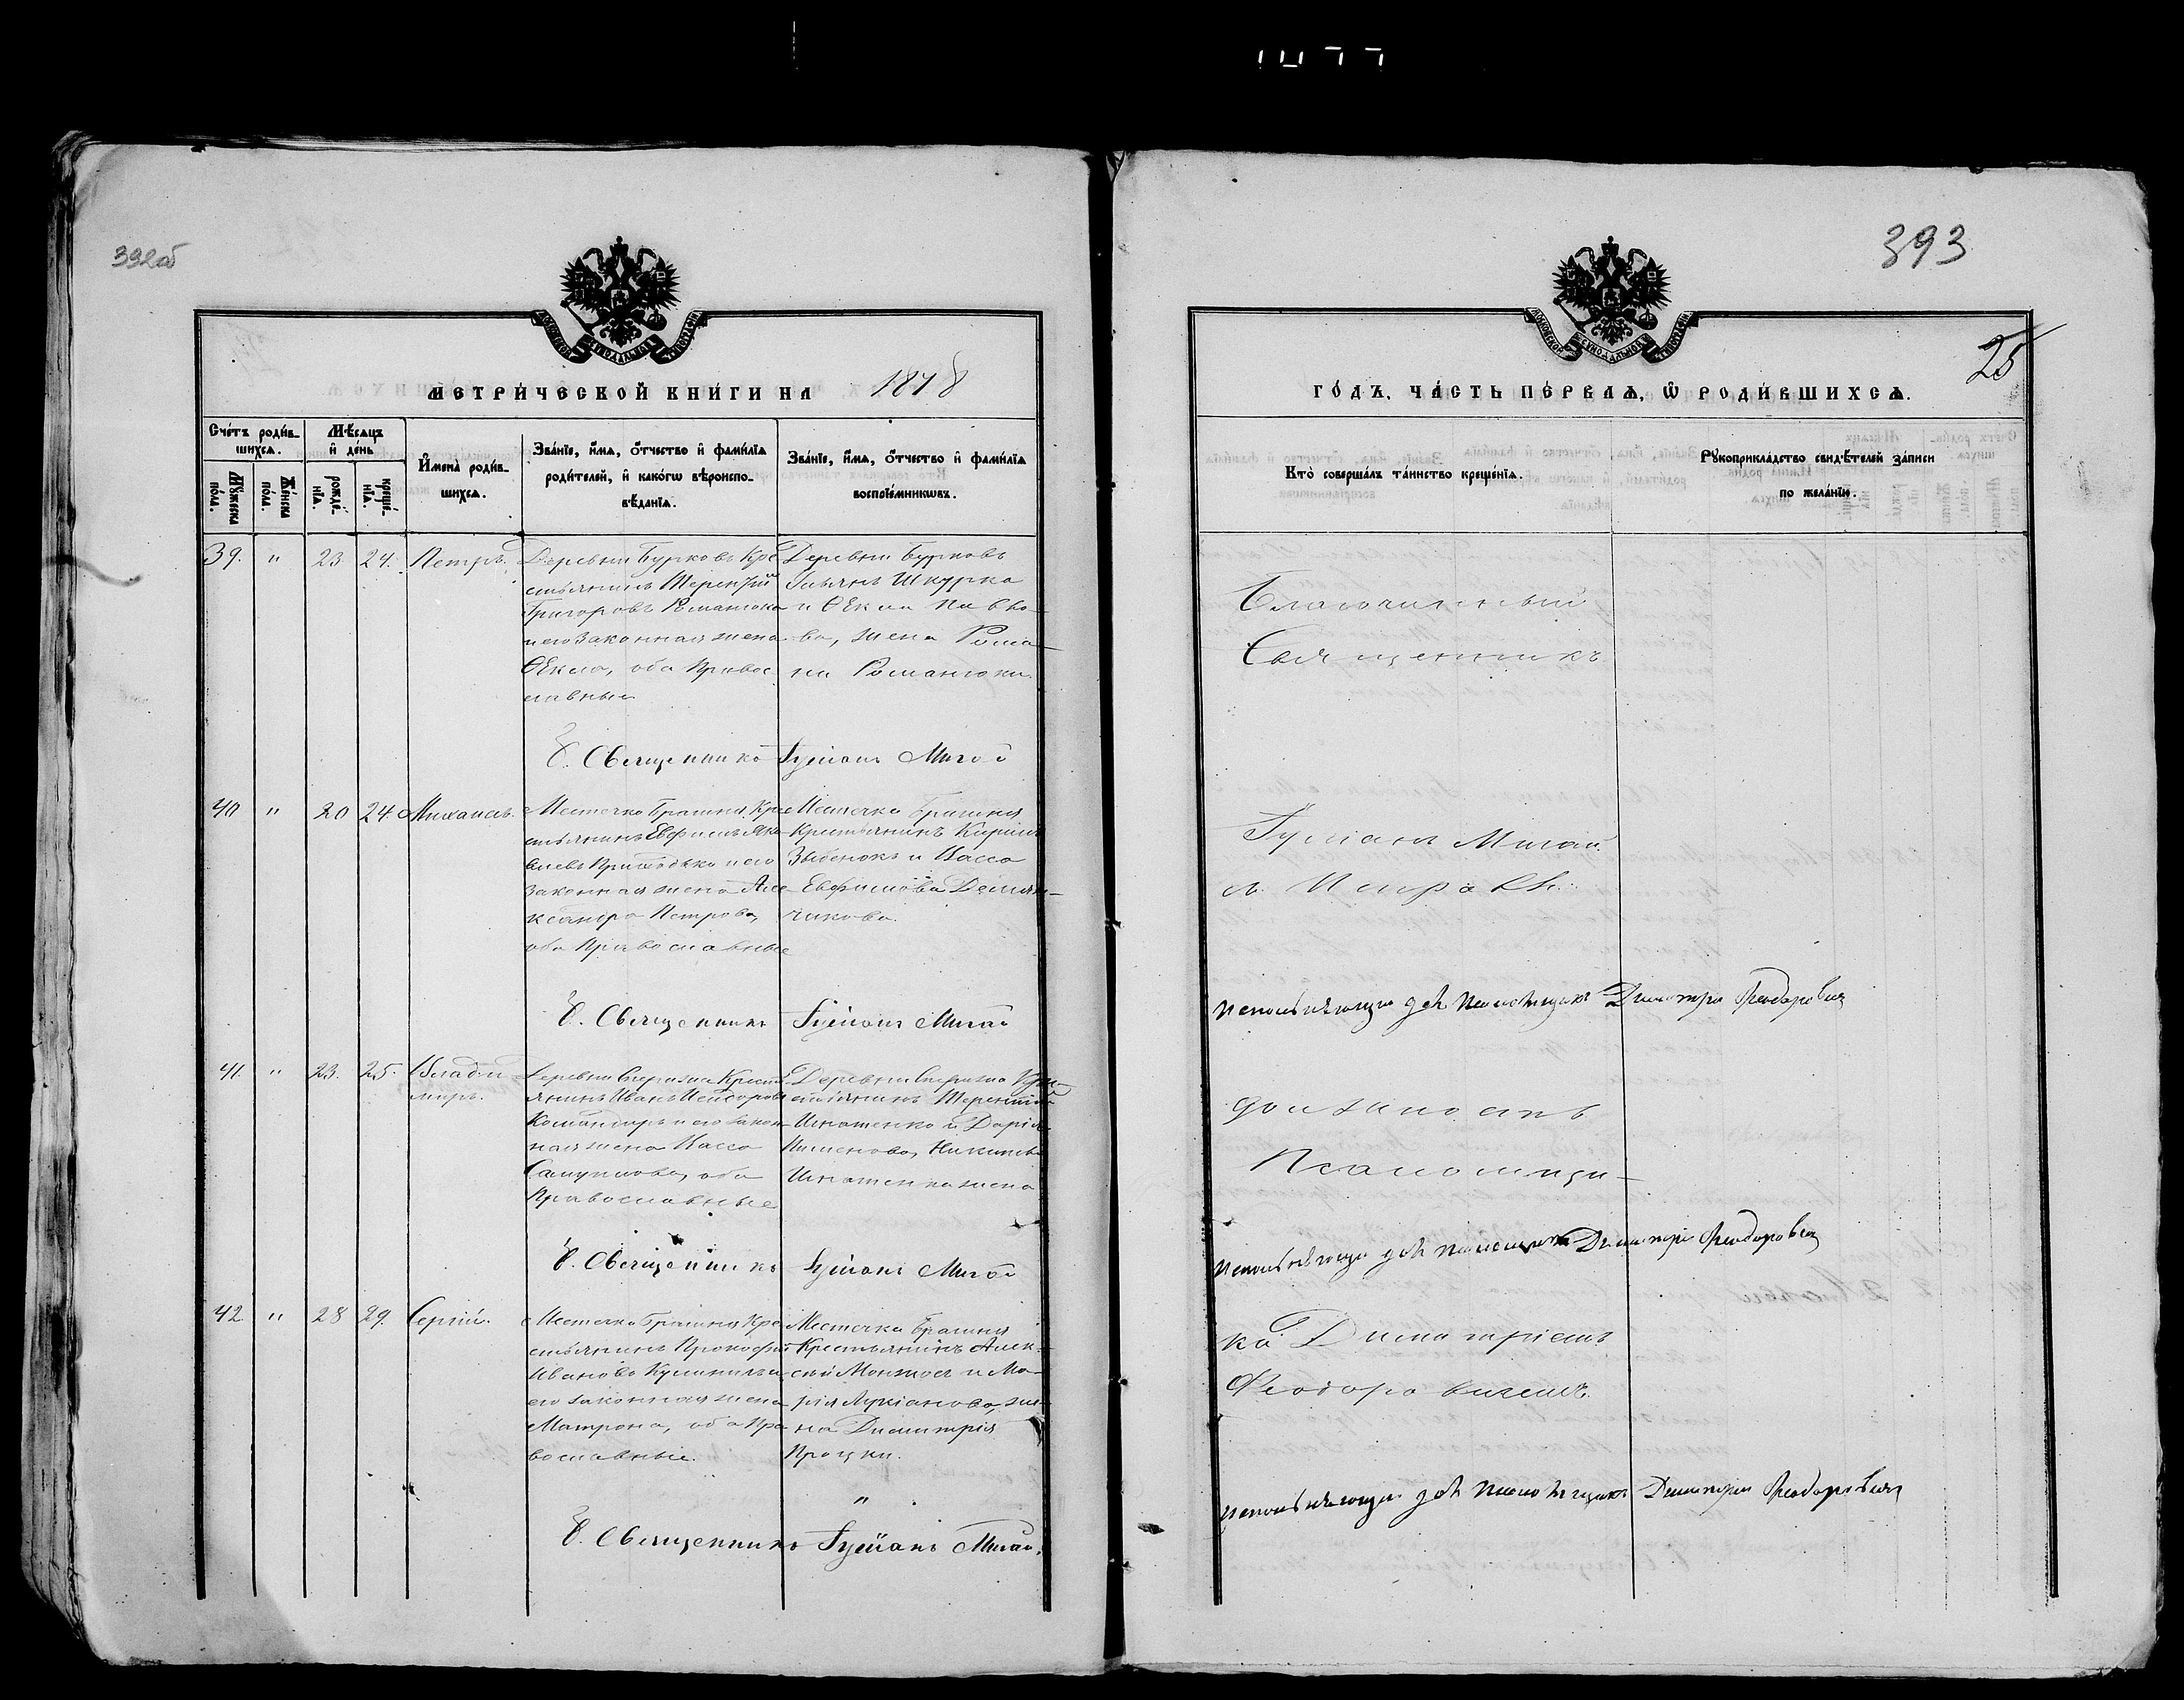 392об
393
25
МОСКОВСКОЙ СѴНОДАЛЬНОЙ ТѴПОГРАФІИ
МЕТРИ́ЧЕСКОЙ КНИ́ГИ НА 1878
Сче́тъ роди́в-
шихсѧ.
Мꙋ́жеска по́ла.
Же́нска по́ла.
Мѣ́сѧцъ
и҆ де́нь
рожде́-
нїѧ.
креще́-
нїѧ.
И҆мена̀ роди́в-
шихсѧ.
Зва́нїе, и҆́мѧ, ѻ҆́тчество и҆ фами́лїѧ
роди́телей, и҆ како́гѡ вѣроиспо-
вѣ́данїѧ.
Зва́нїе, и҆́мѧ, ѻ҆́тчество и҆ фами́лїѧ
воспрїе́мникѡвъ.
39. " 23 24. Петръ.
Деревни Бурковъ Кре-
стьянинъ Терентій
Григоровъ Романюко
и его законная жена
Ѳекла, оба Правос-
лавные
Деревни Бурковъ
Шкурко
и Ѳекла Павло-
ва, жена Рома-
на Романюка
Священникъ Гуліанъ Мигай
40 " 20 24. Михаилъ.
Местечка Брагиня Кре-
стьянинъ Евфимъ Яко-
влевъ и его
законная жена Але-
ксандра Петрова,
оба Православные
Местечка Брагиня
Крестьянинъ Кирилъ
и Васса
Евфимова Демян-
чикова.
Священникъ Гуліанъ Мигай
41. " 23. 25. Влади-
миръ.
Деревни Крест-
янинъ Иванъ
Командиръ и его закон-
ная жена Васса
Самуилова, оба
Православные
Деревни Кре-
стьянинъ Терентій
Игнатенко и Дарія
Пименова, Никиты
Игнатенка жена
Священникъ Гуліанъ Мигай
42. " 28 29. Сергій.
Местечка Брагиня Кре-
стьянинъ Прокофій
Ивановъ и
его законная жена
Матрона, оба Пра-
вославные.
Местечка Брагиня
Крестьянинъ Алек-
сѣй и Ма-
рія Лукіанова, же-
на Димитрія
Процки.
"
Священникъ Гуліанъ Мигай.
ГО́ДЪ, ЧА́СТЬ ПЕ́РВАѦ, Ѡ҆ РОДИ́ВШИХСѦ.
Кто̀ соверша́лъ та́инство креще́нїѧ.
Рꙋкоприкла́дство свидѣ́телей за́писи
по жела́нїю.
Благочинный
Священникъ
Гуліанъ Мигай
Исполняющій дол Псаломщика Димитрій Феодоровичъ
должность
Псаломщи-
Исполняющій дол Псаломщика Димитрій Феодоровичъ
ка Димитріемъ
Феодоровичемъ.
Исполняющій дол Псаломщика Димитрій Феодоровичъ